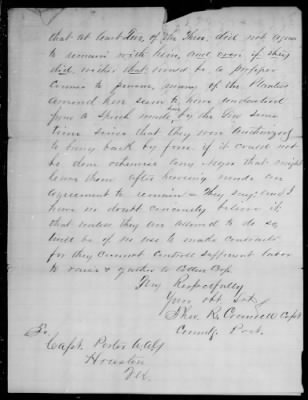 that at least two, of the three, did not agree
to remain with him, and even if they
did, wether that would be a proper
course to pursue, many of the Planters
around here seem to have understood
from a Speech made here by the Gov some
time since that they were authorized
to bring back by force if it could not
be done otherwise any negro that might
leave them after having made an
agreement to remain & They say, and I
have no doubt sincerely believe it
that unless they are allowed to do so
will be of no use to make contracts
for they cannot controll sufficient labor
to raise & gather a Cotton Crop.
Very Respectfully
Your obt. Svt.
R. Connell Capt
Comndg. Post.
To.
Capt. Porter A.A.G
Houston
Tex.